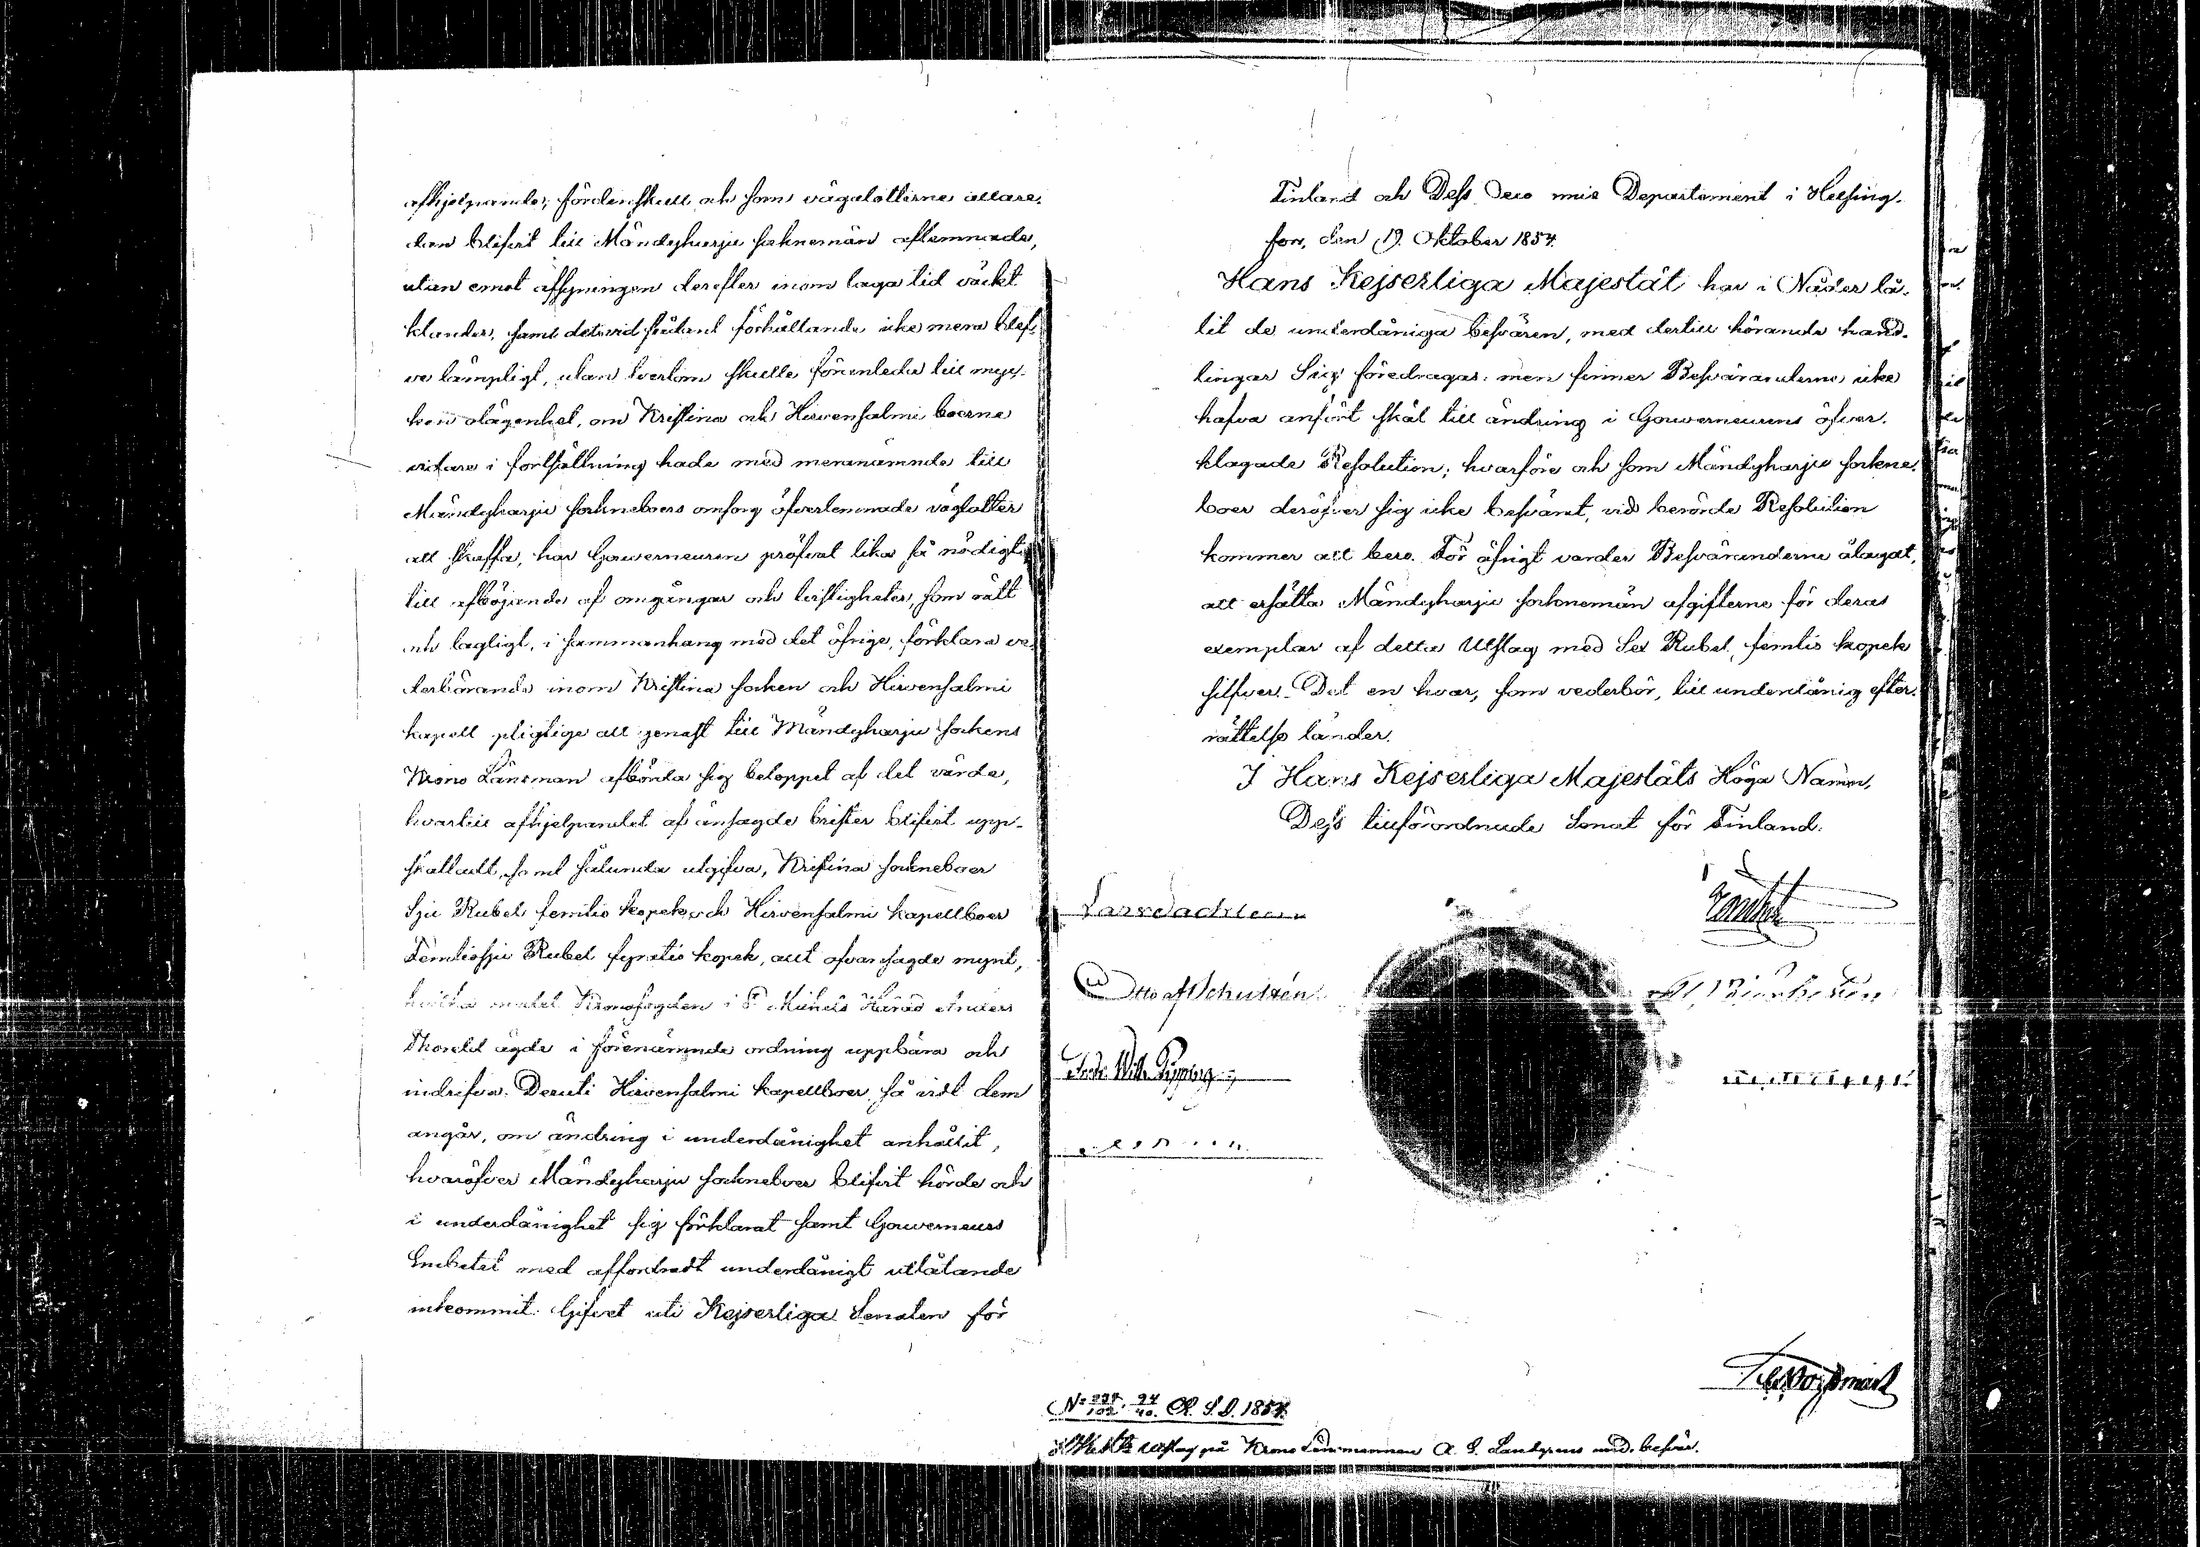 afhjelpande; fördenskull och som vägalotterne allare-
dan blifvit till Mändyharju socknemän aflemnade,
utan emot afsyningen derefter inom laga tid väckt
klander, samt detvid sålunda förhållande icke mera blef-
ve lämpligt, utan tvertom skulle föranleda till myc-
ken olägenhet, om Kristina och Hirvensalmi boerne
vidare i fortsättning hade med meranämnde till
Mändyharju sockneboers omsorg öfverlemnade väglotter
att skaffa, har Gouverneuren pröfvat lika så nödigt
till afböjande af omgångar och tvistigheter, som rätt
och lagligt, i sammanhang med det öfriga, förklara ve-
derbörande inom Kristina socken och Hirvensalmi
kapell pligtige att genast till Mändyharju sockens
Krono Länsman afbörda sig beloppet af det värde,
hvartill afhjelpandet af ansagde brister blifvit upp-
skattadt, samt sålunda utgifva, Kristina sockneboer
Sju Rubel femtio kopek och Hirvensalmi kapellboer
Femtiosju Rubel fyratio kopek, allt ofvansagde mynt,
hvilka medel Kronofogden i St Michels Härad Anders
Thoreld ägde i förenämnde ordning uppbära och
indrifva. Deruti Hirvensalmi kapellboer, så vidt dem
angår, om ändring i underdånighet anhållit,
hvaröfver Mändyharju sockneboer blifvit hörde och
i underdånighet sig förklarat samt Gouverneurs
Embetet med affordradt underdånigt utlåtande
inkommit. Gifvet uti Kejserliga Senaten för
Finland och Dess Oeconomie Departement i Helsing-
fors, den 19 Oktober 1854.
Hans Kejserliga Majestät har i Nåder lå-
tit de underdåniga besvären, med dertill hörande hand-
lingar Sig föredragas: men finner Besväranderne icke
hafva anfört skäl till ändring i Gouverneurens öfver-
klagade Resolution; hvarföre och som Mändyharju sockne-
boer deröfver sig icke besvärat, vid berörde Resolution
kommer att bero. För öfrigt varder Besväranderne ålagdt,
att ersätta Mändyharju socknemän afgifterne för deras
exemplar af detta Utslag med Sex Rubel femtio kopek
silfver. Det en hvar, som vederbör, till underdånig efter-
rättelse länder.
I Hans Kejserliga Majestäts Höga Namn,
Dess tillförordnade Senat för Finland.
Lars Sackleen
Otto af Schultén
Fredr. Wilh. Pipping
No 102. 40. 1854.
Utslag på Krono Länsmannen A. G. Landgrens und. besvär.